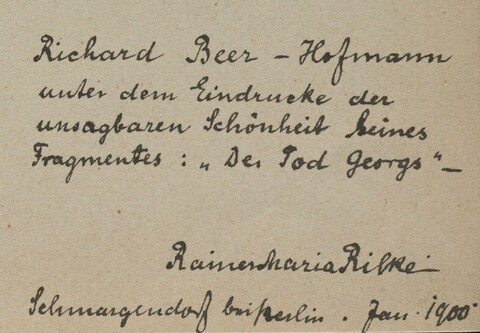 Richard Beer-Hofmann
unter dem Eindrucke der
unsagbaren Schönheit seines
Fragmentes: „Der Tod Georgs"—
Rainer Maria Rilke
Schmargendorf bei Berlin. Jan. 1900